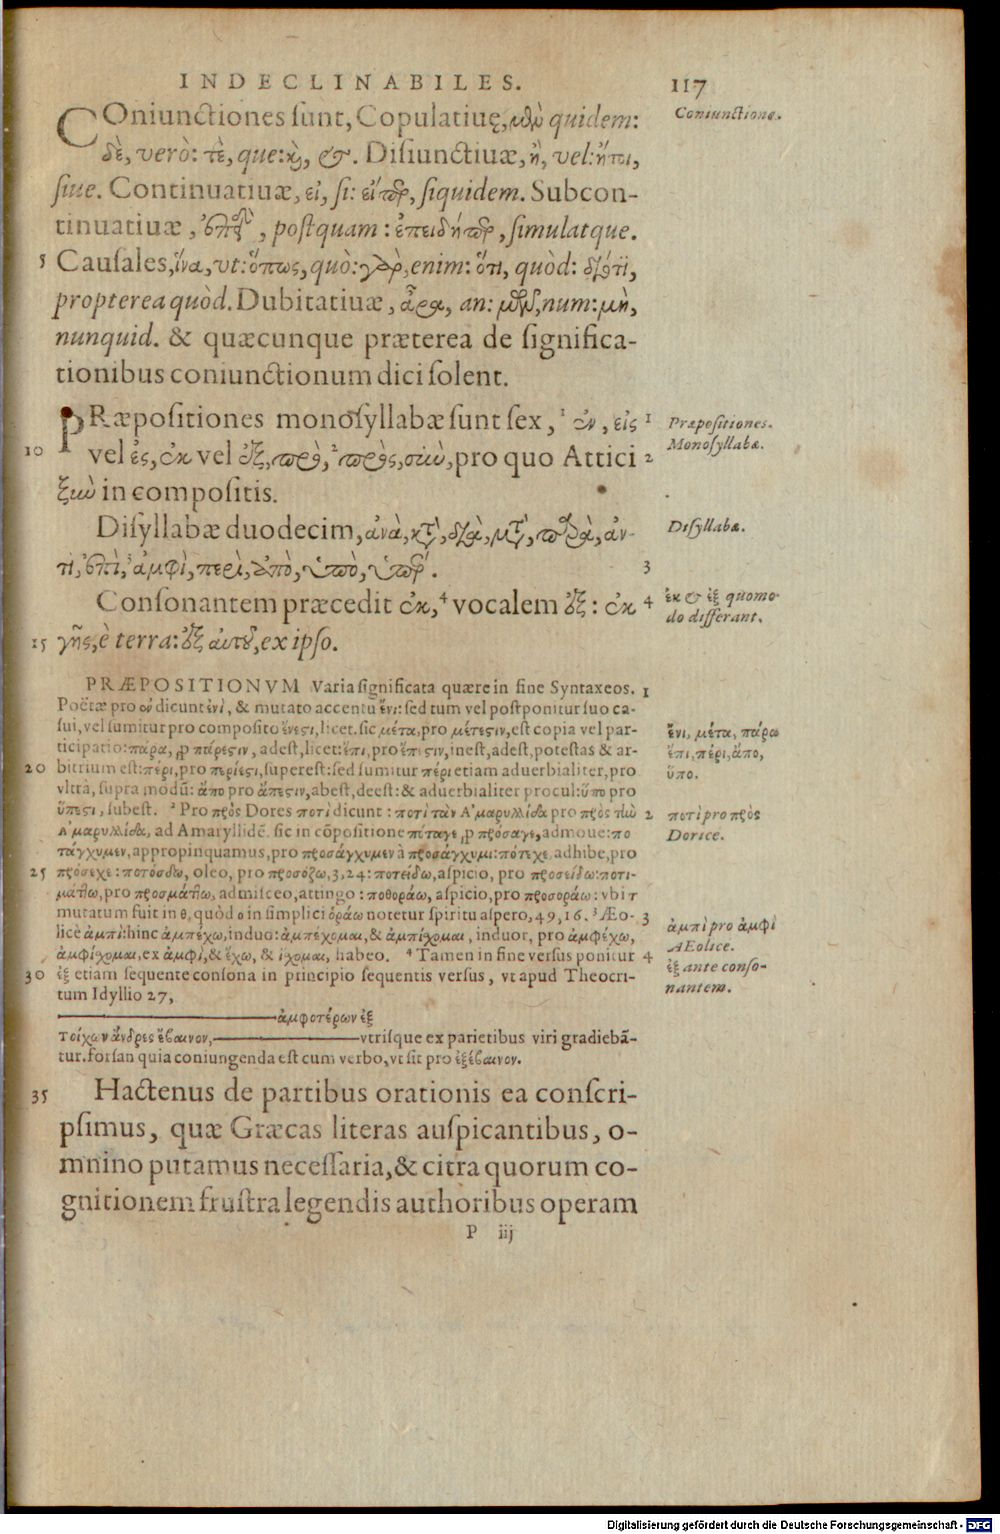 INDECLINABILES. 117
COniunctiones sunt, Copulatiuę, μὲν quidem: Coniunctiones.
δὲ, verò: τὲ, que: καὶ, &. Disiunctiuæ, ἢ, vel: ἤτοι,
siue. Continuatiuæ, εἰ, si: εἴπερ, siquidem. Subcon-
tinuatiuæ, ἐπεὶ, postquam: ἐπειδήπερ, simulatque.
5 Causales, ἵνα, vt: ὅπως, quò: γὰρ, enim: ὅτι, quòd: διότι,
propterea quòd. Dubitatiuæ, ἆρα, an: μῶν, num: μὴ,
nunquid. & quæcunque præterea de significa-
tionibus coniunctionum dici solent.
PRæpositiones monosyllabæ sunt sex, ¹ ἐν, εἰς 1 Præpositiones.
10 vel ἐς, ἐκ vel ἐξ, πρὸ, ²πρὸς, σὺν, pro quo Attici 2 Monosyllabæ.
ξὺν in compositis.
Disyllabæ duodecim, ἀνὰ, κατὰ, διὰ, μετὰ, παρὰ, ἀν- Disyllabæ.
τὶ, ἐπὶ, ³ἀμφὶ, περὶ, ἀπὸ, ὑπὸ, ὑπὲρ. 3
Consonantem præcedit ἐκ, ⁴ vocalem ἐξ: ἐκ 4 ἐκ & ἐξ quomo-
15 γῆς, è terra: ἐξ αὐτοῦ, ex ipso. do differant.
PRÆPOSITIONVM Varia significata quære in fine Syntaxeos. 1
Poëtæ pro ἐν dicunt ἐνὶ, & mutato accentu ἔνι: sed tum vel postponitur suo ca-
sui, vel sumitur pro composito ἔνεστι, licet. sic μέτα, pro μέτεστιν, est copia vel par- ἔνι, μέτα, πάρα
ticipatio: πάρα, ꝓ πάρεστιν, adest, licet: ἔπι, pro ἔπεστιν, inest, adest, potestas & ar- ἔπι, πέρι, ἄπο,
20 bitrium est: πέρι, pro περίεστι, superest: sed sumitur πέρι etiam aduerbialiter, pro ὕπο.
vltrà, supra modũ: ἄπο pro ἄπεστιν, abest, deest: & aduerbialiter procul: ὕπο pro
ὕπεστι, subest. ² Pro πρὸς Dores ποτὶ dicunt: ποτὶ τὰν Ἀμαρυλλίδα pro πρὸς τὴν 2 ποτὶ pro πρὸς
Ἀμαρυλλίδα, ad Amaryllidẽ. sic in cõpositione πόταγε, ꝓ πρόσαγε, admoue: πο Dorice.
τάγχυμεν, appropinquamus, pro προσάγχυμεν à προσάγχυμι: πότεχε adhibe, pro
25 πρόσεχε: ποτόσδω, oleo, pro προσόζω, 3, 24: ποτείδω, aspicio, pro προσείδω: ποτι-
μάττω, pro προσμάττω, admisceo, attingo: ποθοράω, aspicio, pro προσοράω: vbi τ
mutatum fuit in θ, quòd ο in simplici ὁράω notetur spiritu aspero, 49, 16. ³ Æo- 3 ἀμπὶ pro ἀμφὶ
licè ἀμπὶ: hinc ἀμπέχω, induo: ἀμπέχομαι, & ἀμπίχομαι, induor, pro ἀμφέχω, AEolice.
ἀμφίχομαι, ex ἀμφὶ, & ἔχω, & ἴχομαι, habeo. ⁴ Tamen in fine versus ponitur 4 ἐξ ante conso-
30 ἐξ etiam sequente consona in principio sequentis versus, vt apud Theocri- nantem.
tum Idyllio 27,
————— ἀμφοτέρων ἐξ
Τοίχων ἄνδρες ἔβαινον, ————— vtrisque ex parietibus viri gradiebã-
tur. forsan quia coniungenda est cum verbo, vt sit pro ἐξέβαινον.
35 Hactenus de partibus orationis ea conscri-
psimus, quæ Græcas literas auspicantibus, o-
mnino putamus necessaria, & citra quorum co-
gnitionem frustra legendis authoribus operam
P iij
Digitalisierung gefördert durch die Deutsche Forschungsgemeinschaft - DFG